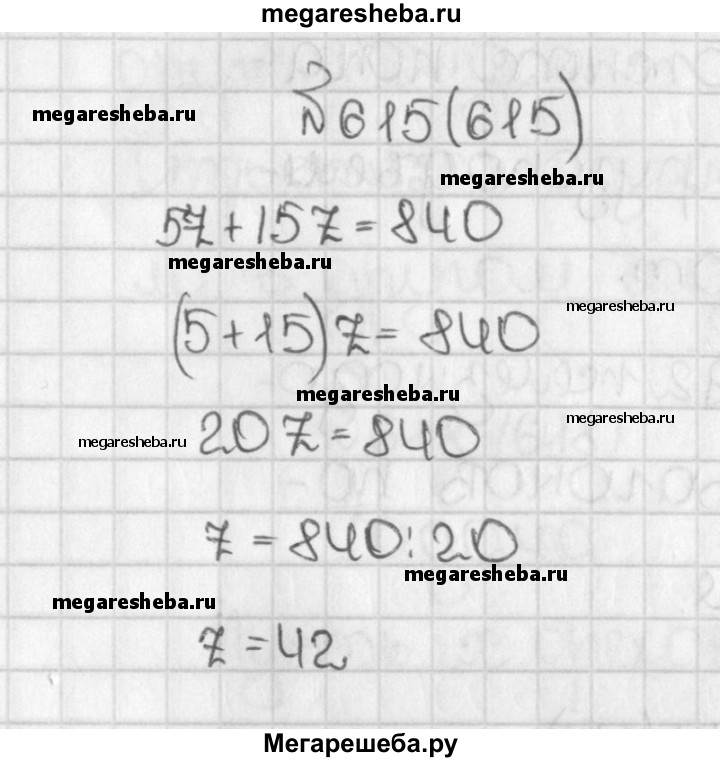 megaresheba.ru
№ 615(615)
megaresheba.ru
megaresheba.ru
5z + 15z = 840
megaresheba.ru
megaresheba.ru
(5 + 15)z = 840
megaresheba.ru
megaresheba.ru
megaresheba.ru
20z = 840
z = 840 : 20
megaresheba.ru
megaresheba.ru
z = 42
Мегарешеба.ру